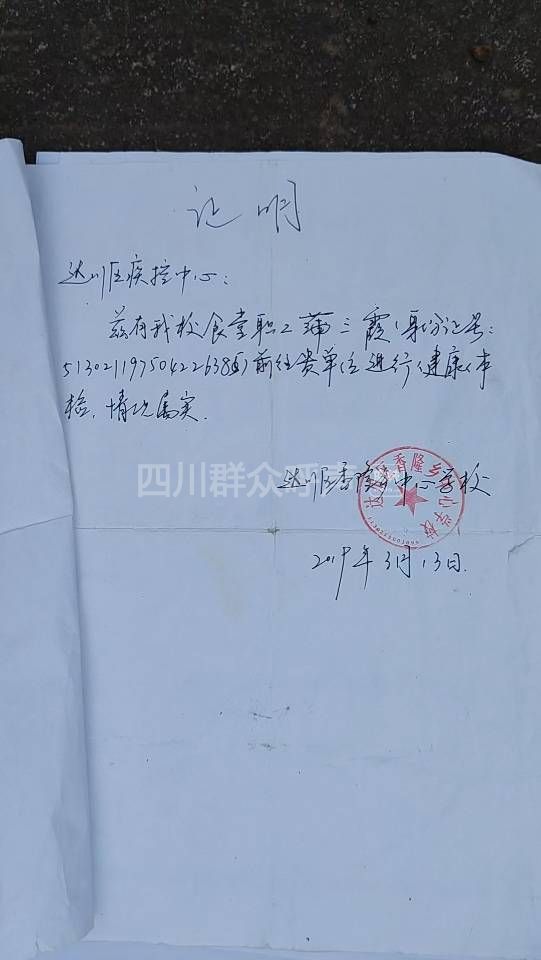 证明
达川区疾控中心：
兹有我校食堂职工蒲三霞（身份证号：
513021197504222638）前往贵单位进行健康体
检，情况属实.
四川群众呼
达川区香隆乡中心学校
香隆乡
心学校
2019年3月13日.